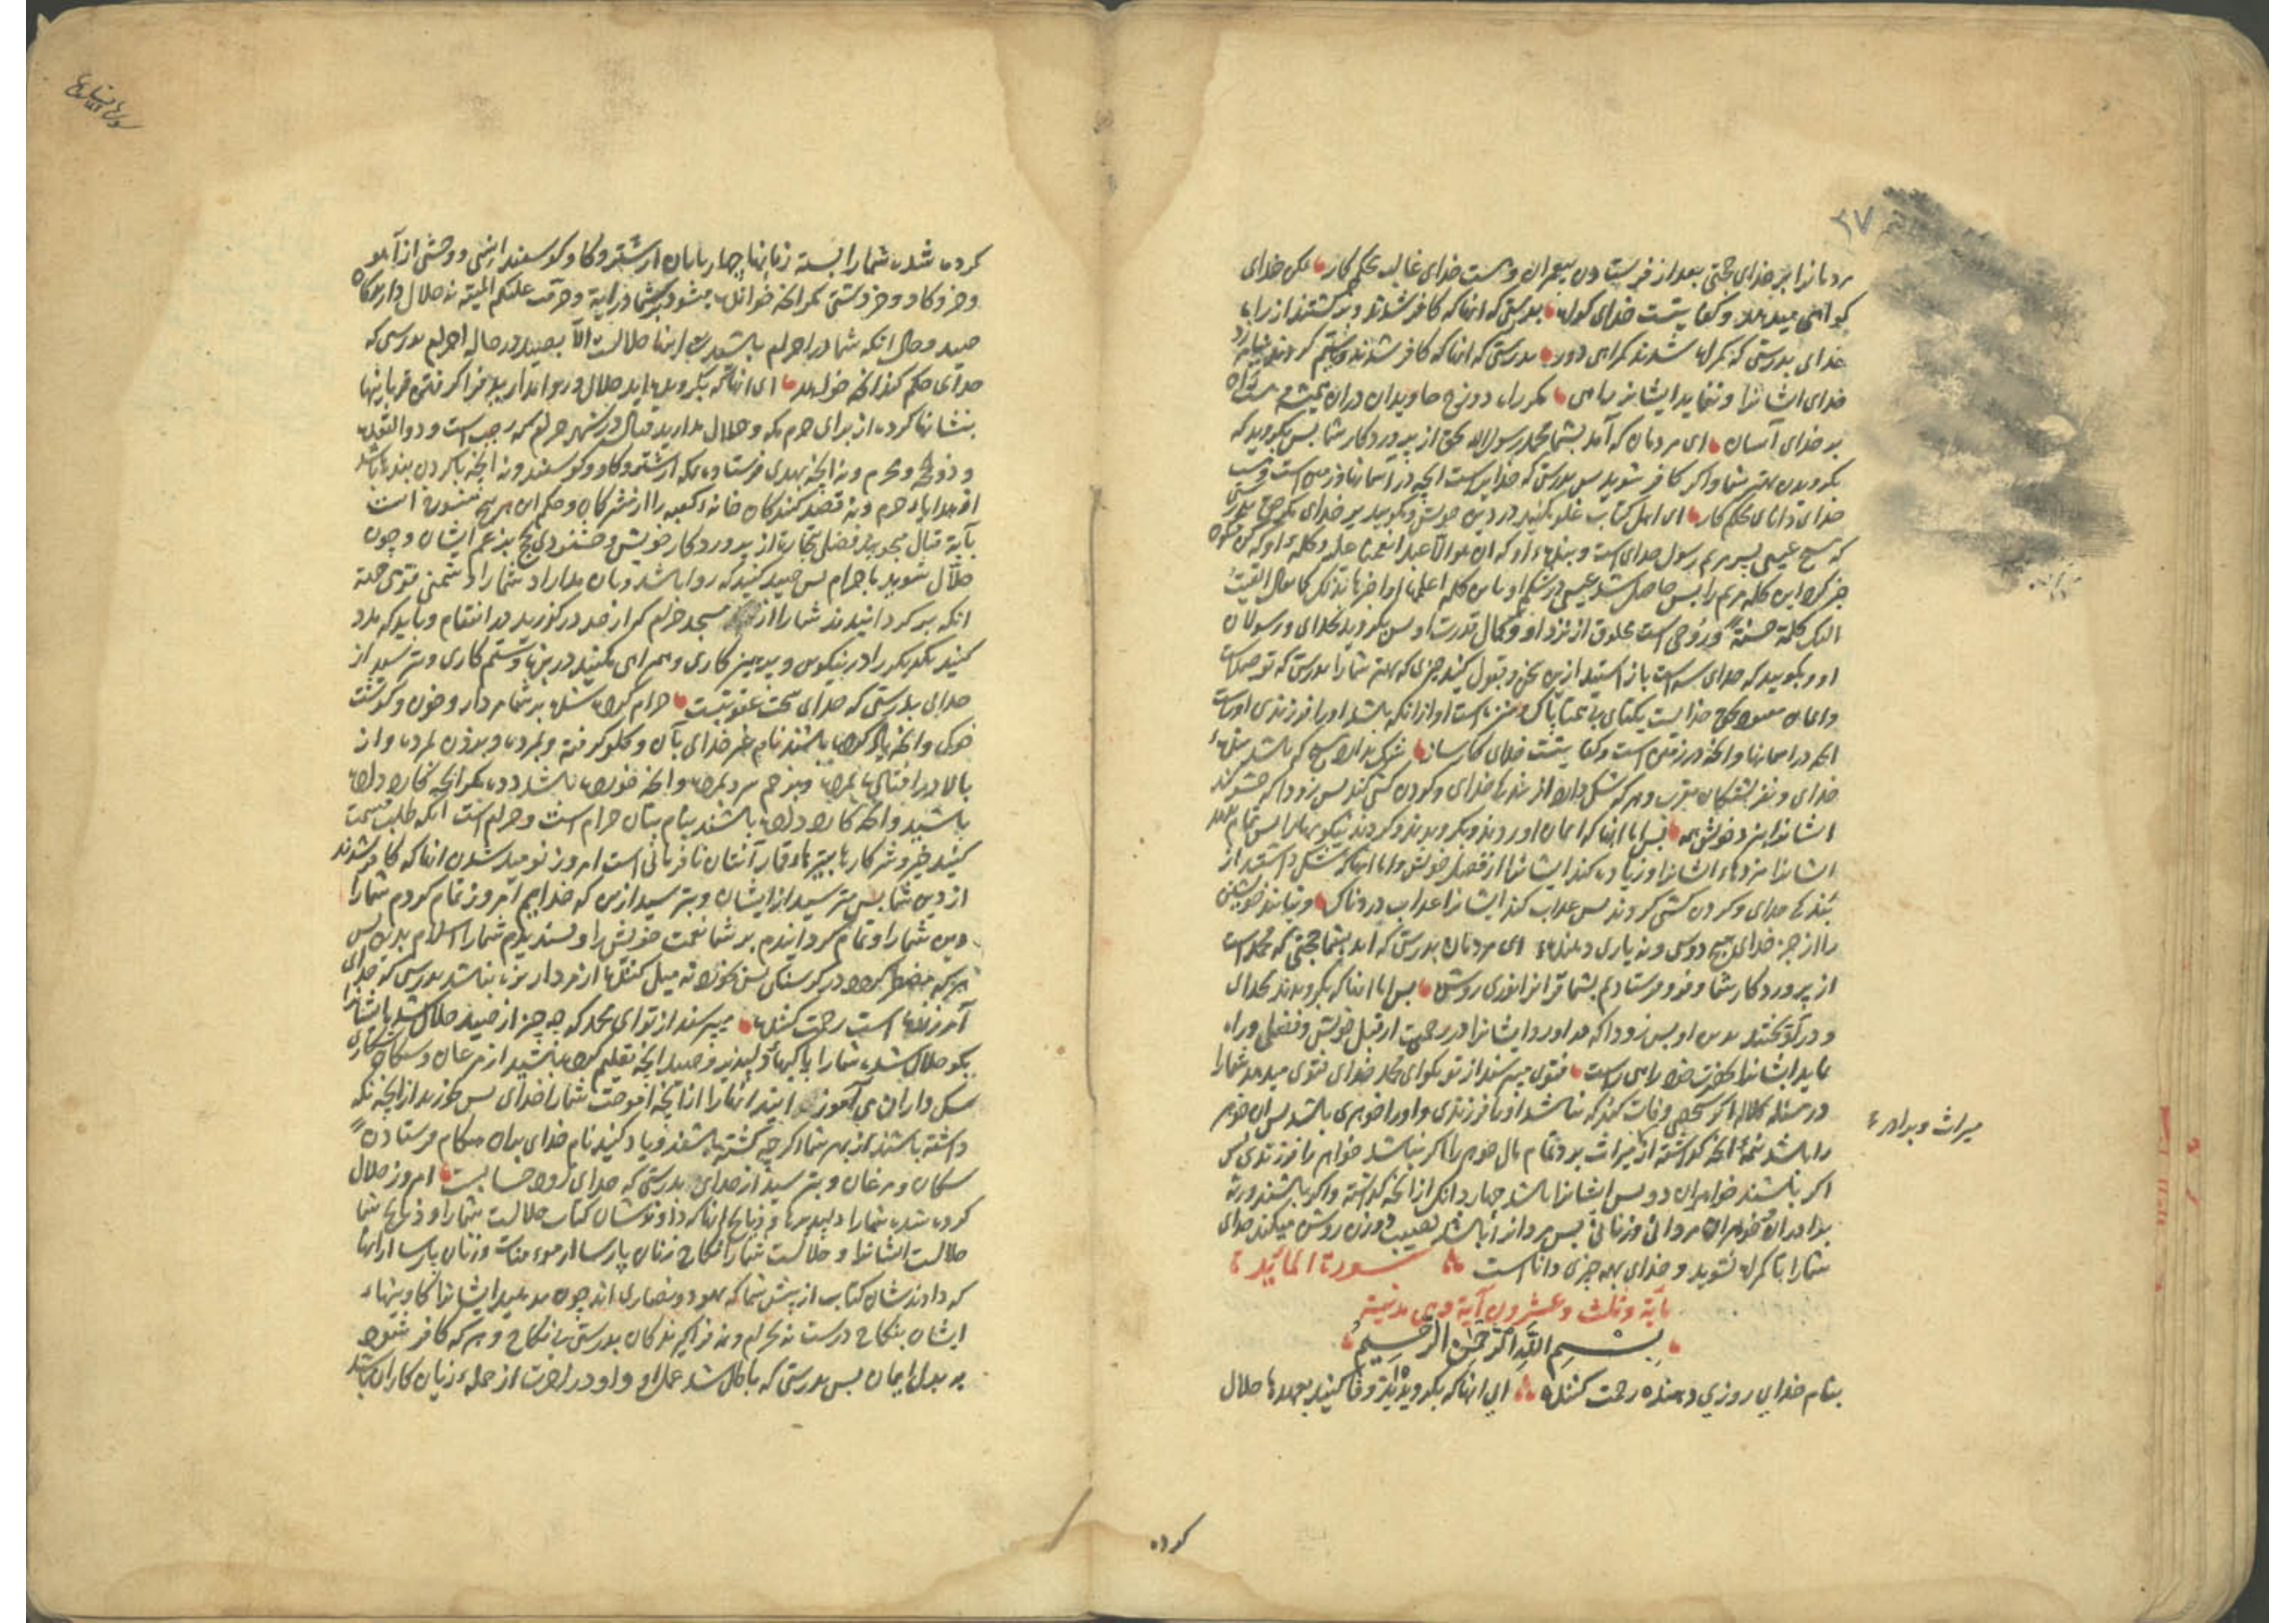 ۲۷
مردمانرا بر خدای حجتی بعد از فرستادن پیغمبران و هست خدای غالب محکم کار لکن خدای
کواهی میدهد و کفا پشت خدای کواه بدرستی که آنها که کافر شدند و بر کشتند از راه
خدای بدرستی که کمراه شدند کمراهی دور بدرستی که آنها که کافر شدند و ستم کردند
خدای ایشانرا و ننماید ایشانرا راهی مکر راه دوزخ جاویدان دران همیشه
بر خدای آسان ای مردمان که آمد بشما محمد رسول الله بحق از پروردکار شما پس بکروید که
بکرویدن بهتر شما و اکر کافر شوید پس بدرستی که خدایراست آنچه در آسمانها و زمین است
خدای دانای محکم کار ای اهل کتاب غلو مکنید در دین خویش و مکویید بر خدای مکر حق
که مسیح عیسی پسر مریم رسول خدای است و بنده او
جبرئیل این کلمه مریم را پس حاصل شد عیسی در شکم او
الیک کلمة حسنة و روحی است مخلوق از نزد او و کمال قدرت او پس بکروید بخدای و رسولان
او و مکویید که خدای سه است باز استید ازین سخن و قبول کنید چیزی که بهتر شما را بدرستی که
خدایست یکتای بی همتا پاک و منزه است او از انکه باشد او را فرزندی
آنچه در آسمانها و آنچه در زمین است و کفا پشت خدای کارساز
خدای و نه فریشتکان مقرب و هر که ننک دارد از بندکی خدای و کردن کشی کند پس زود که حشر کند
ایشانرا بنزد خویش همه پس اما آنها که ایمان آوردند و بکرویدند و کردند نیکویها پس تمام دهد
ایشانرا مزدهاء ایشانرا و زیاده کند ایشانرا از فضل خویش و اما آنها که ننک داشتند از
بندکی خدای و کردن کشی کردند پس عذاب کند ایشانرا عذاب دردناک و نیابند خویشتن
را از جز خدای هیچ دوستی و نه یاری دهنده ای مردمان بدرستی که آمد بشما حجتی که محمد است
از پروردکار شما و فرو فرستادیم بشما قرآنرا نوری روشن پس اما آنها که بکرویدند بخدای
و در آویختند بدین او پس زود که در آورد ایشانرا در رحمت از قبل خویش و فضلی و راه
نماید ایشانرا بحضرت خود راهی راست فتوی می پرسند از تو بکو ای محمد خدای فتوی میدهد شما را
در مسئله کلاله اکر شخصی وفات کند که نباشد او را فرزندی و او را خواهری باشد پس آن خواهر
را باشد نیمه آنچه کذاشته از میراث برد تمام مال خواهر را اکر نباشد خواهر را فرزندی پس
اکر باشند خواهران دو پس ایشانرا باشد چهار دانک از آنچه کذاشته و اکر باشند ورثه
برادران و خواهران مردانی و زنانی پس مرد را باشد نصیب دو زن روشن میکند خدای
شما را تا کمراه نشوید و خدای بهمه چیزی دانا است سورة المائیده
مایة و ثلث و عشرون آیة و هی مدنیة
بسم الله الرحمن الرحیم
بنام خدای روزی دهنده رحمت کننده ای آنها که بکرویده اید وفا کنید بعهدها حلال
میراث و برادر
کرده
کرده شده شما را بسته زبانها چهارپایان از شتر و کاو و کوسفند انسی و وحشی از آهو
و خر و کاو و خر دشتی مکر آنچه خوانده میشود بر شما در آیة و حرمت علیکم المیتة نه حلال دارندکان
صید و حال انکه شما در احرام باشید اینها حلالست الا بصید در حال احرام بدرستی که
خدای حکم کند آنچه خواهد ای آنها که بکرویده اید حلال و روا مدارید فرا کرفتن قربانیها
بنشانها کرده از برای حرم مکه و حلال مدارید قتال در شهر حرام که رجب است و ذوالقعده
و ذوحجه و محرم و نه آنچه بهدی فرستاده بمکه از شتر و کاو و کوسفند و نه آنچه با کردن بندها باشد
از هدایاء حرم و نه قصد کنندکان خانه کعبه را از مشرکان و حکم این هر پنج منسوخ است
بآیة قتال میجویند فضل تجارت از پروردکار خویش و خشنودی حج بزعم ایشان و چون
حلال شوید با حرام پس صید کنید که روا باشد و بان مدارد شما را دشمنی قومی
انکه بر کردانیدند شما را از مسجد حرام که از حد در کذرید در انتقام و باید که مدد
کنید یکدیکر را در نیکویی و پرهیزکاری و همراهی مکنید در بزه و ستم کاری و بترسید از
خدای بدرستی که خدای سخت عقوبتست حرام کرده شده بر شما مردار و خون و کوشت
خوک و آنچه یاد کرده باشند نام غیر خدای بآن و کلو کرفته و بمرده و بزدن بمرده و از
بالا در افتاده بمرده و بزخم سرو بمرده و آنچه خورده باشد دد مکر آنچه کارد داده
باشید و آنچه کارد داده باشند بنام بتان حرام است و حرام است آنکه طلب قسمت
کنید خیر و شر کارها بتیرهاء قمار آنتان نافرمانی است امروز نومید شدن آنها که کافر شدند
از دین شما پس مترسید از ایشان و بترسید از من که خدایم امروز تمام کردم شما را
دین شما را و تمام کردانیدم بر شما نعمت خویش را و پسندیدم شما را اسلام بدین پس
هر که مضطر کردد در کرسنکی پس بخورد نه میل کننده از مردار بزه نباشد بدرستی که خدای
آمرزنده است رحمت کننده میپرسند از تو ای محمد که چه چیز از صید حلال شد
بکو حلال شده شما را پاکیها دلپذیر و صید آنچه تعلیم کرده باشید از مرغان و سکان شکاری
سک داران می آموزانید آنها را از آنچه آموخت شما را خدای پس بخورید از آنچه نکه
داشته باشند از بهر شما اکر چه کشته باشند و یاد کنید نام خدای بدان هنکام فرستادن
سکان و مرغان و بترسید از خدای بدرستی که خدای زود حسابست امروز حلال
کرده شده شما را دلپذیرها و ذبایح آنها که دادندشان کتاب حلالست شما را و ذبایح شما
حلالست ایشانرا و حلالست شما را نکاح زنان پارسا از مومنات و زنان پارسا از آنها
که دادندشان کتاب از پیش شما که یهود و نصاری اند چون بدهید ایشانرا کاوینهاء
ایشان بنکاح درست نه بحرام و نه فرا کیرندکان بدوستی بی نکاح و هر که کافر شود
به بدل ایمان پس بدرستی که باطل شد عمل او و او در آخرت از جمله زیان کاران باشد